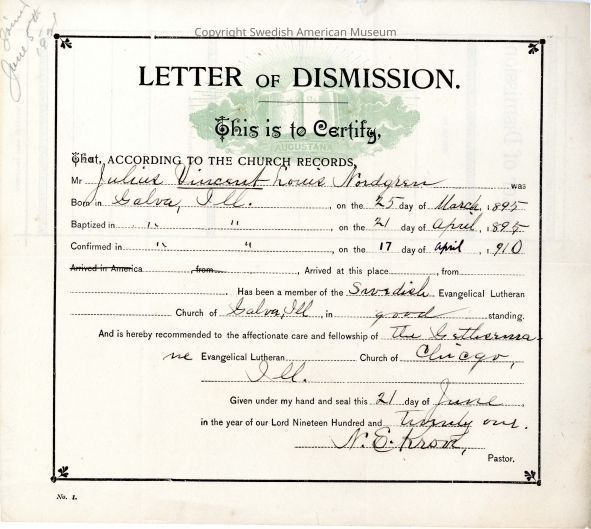 Copyright Swedish American Museum
Joined
June 5th
LETTER OF DISMISSION.
AUGUSTANA
This is to Certify,
That, ACCORDING TO THE CHURCH RECORDS,
Mr Julius Vincent Louis Nordgren was
Born in Galva, Ill. on the 25 day of March, 1895
Baptized in " " on the 21 day of April, 1895
Confirmed in " " on the 17 day of april, 1910
Arrived in America from , Arrived at this place , from
Has been a member of the Swedish Evangelical Lutheran
Church of Galva, Ill, in good standing.
And is hereby recommended to the affectionate care and fellowship of the Gethsema-
ne Evangelical Lutheran Church of Chicgo,
Ill.
Given under my hand and seal this 21 day of June
in the year of our Lord Nineteen Hundred and twenty one.
N. E. Kron,
Pastor.
No. 1.